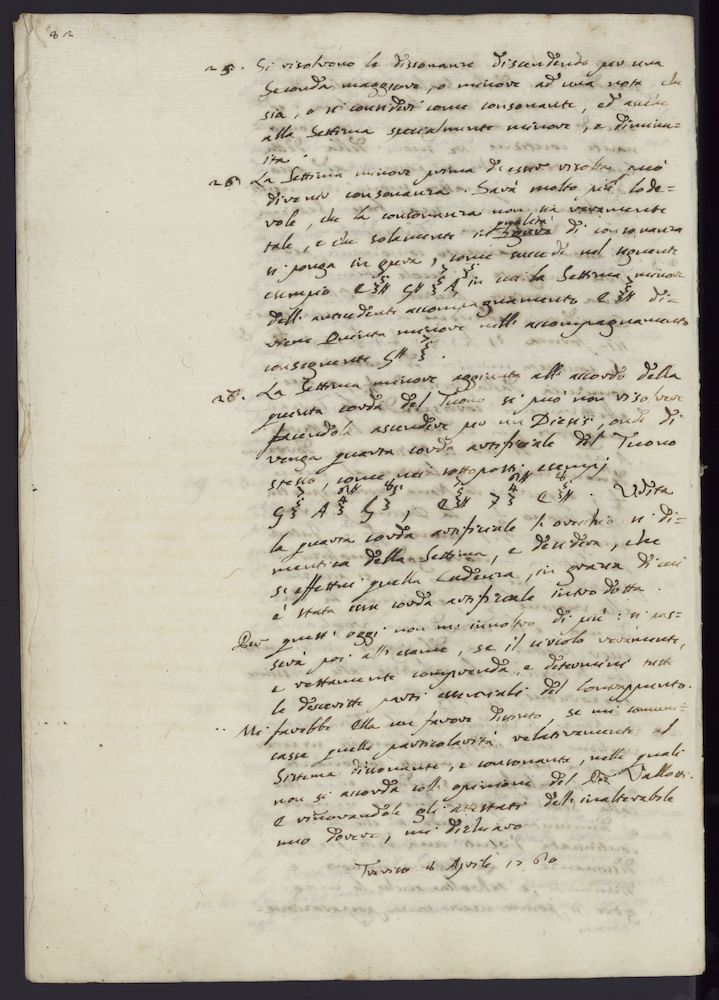 82
25. Si risolvono le dissonanze discendendo per una
Seconda maggiore, o minore ad una nota, che
sia, o si consideri come consonante, ed anche
alla Settima specialmente minore, e diminu=
ita.
26. La Settima minore prima d'esser risolta può
divenir consonanza. Sarà molto più lode=
vole, che la consonanza non sia veramente
tale, e che solamente in qualità di consonanza
si ponga in opera, come succede nel seguente
esempio in cui la Settima minore
dell'antecedente accompagnamento di=
viene Quinta minore nell'accompagnamento
conseguente
28. La Settima minore aggiunta all'accordo della
quinta corda del Tuono si può non risolvere
facendola ascendere per un Diesis, onde di
venga quarta corda artifiziale del Tuono
stesso, come nei sottoposti esempj
Udita
la quarta corda artifiziale l'orecchio si di=
mentica della Settima, e desidera, che
si effettui quella Cadenza, in grazia di cui
è stata essa corda artifiziale introdotta.
Per quest'oggi non mi inoltro di più: si pas=
serà poi all'esame, se il circolo veramente,
e rettamente comprenda, e determini tutte
le descritte parti essenziali del Contrappunto.
Mi farebbe Ella un favore distinto, se mi comuni=
casse quelle particolarità relativamente al
Sistema dissonante, e consonante, nelle quali
non si accorda coll'opinione del Pre Vallotti.
E rinovandole gli attestati dell'inalterabile
mio dovere, mi dichiaro
Treviso 8 Aprile 1780